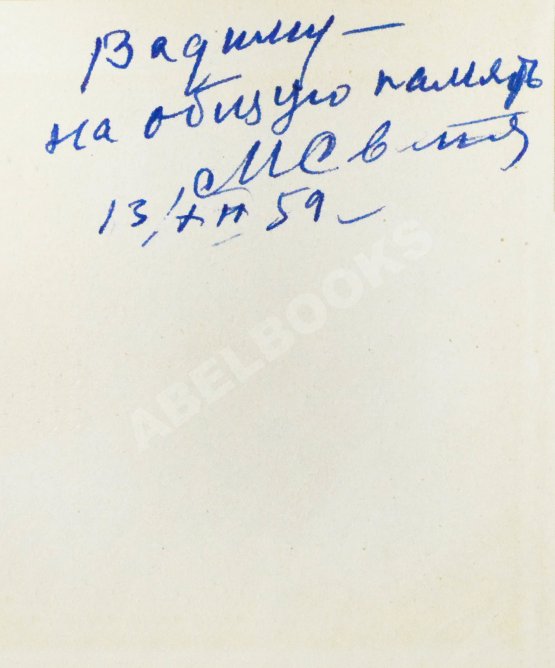 Вадиму —
на общую память
МСветл
13/XII 59
ABELBOOKS